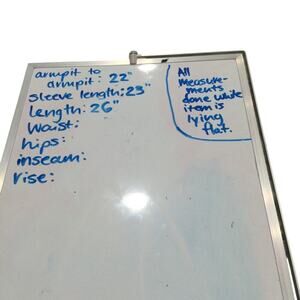 armpit to
armpit: 22"
sleeve length: 23"
length: 26"
Waist:
hips:
inseam:
rise:
All
measure-
ments
done while
item is
lying
flat.